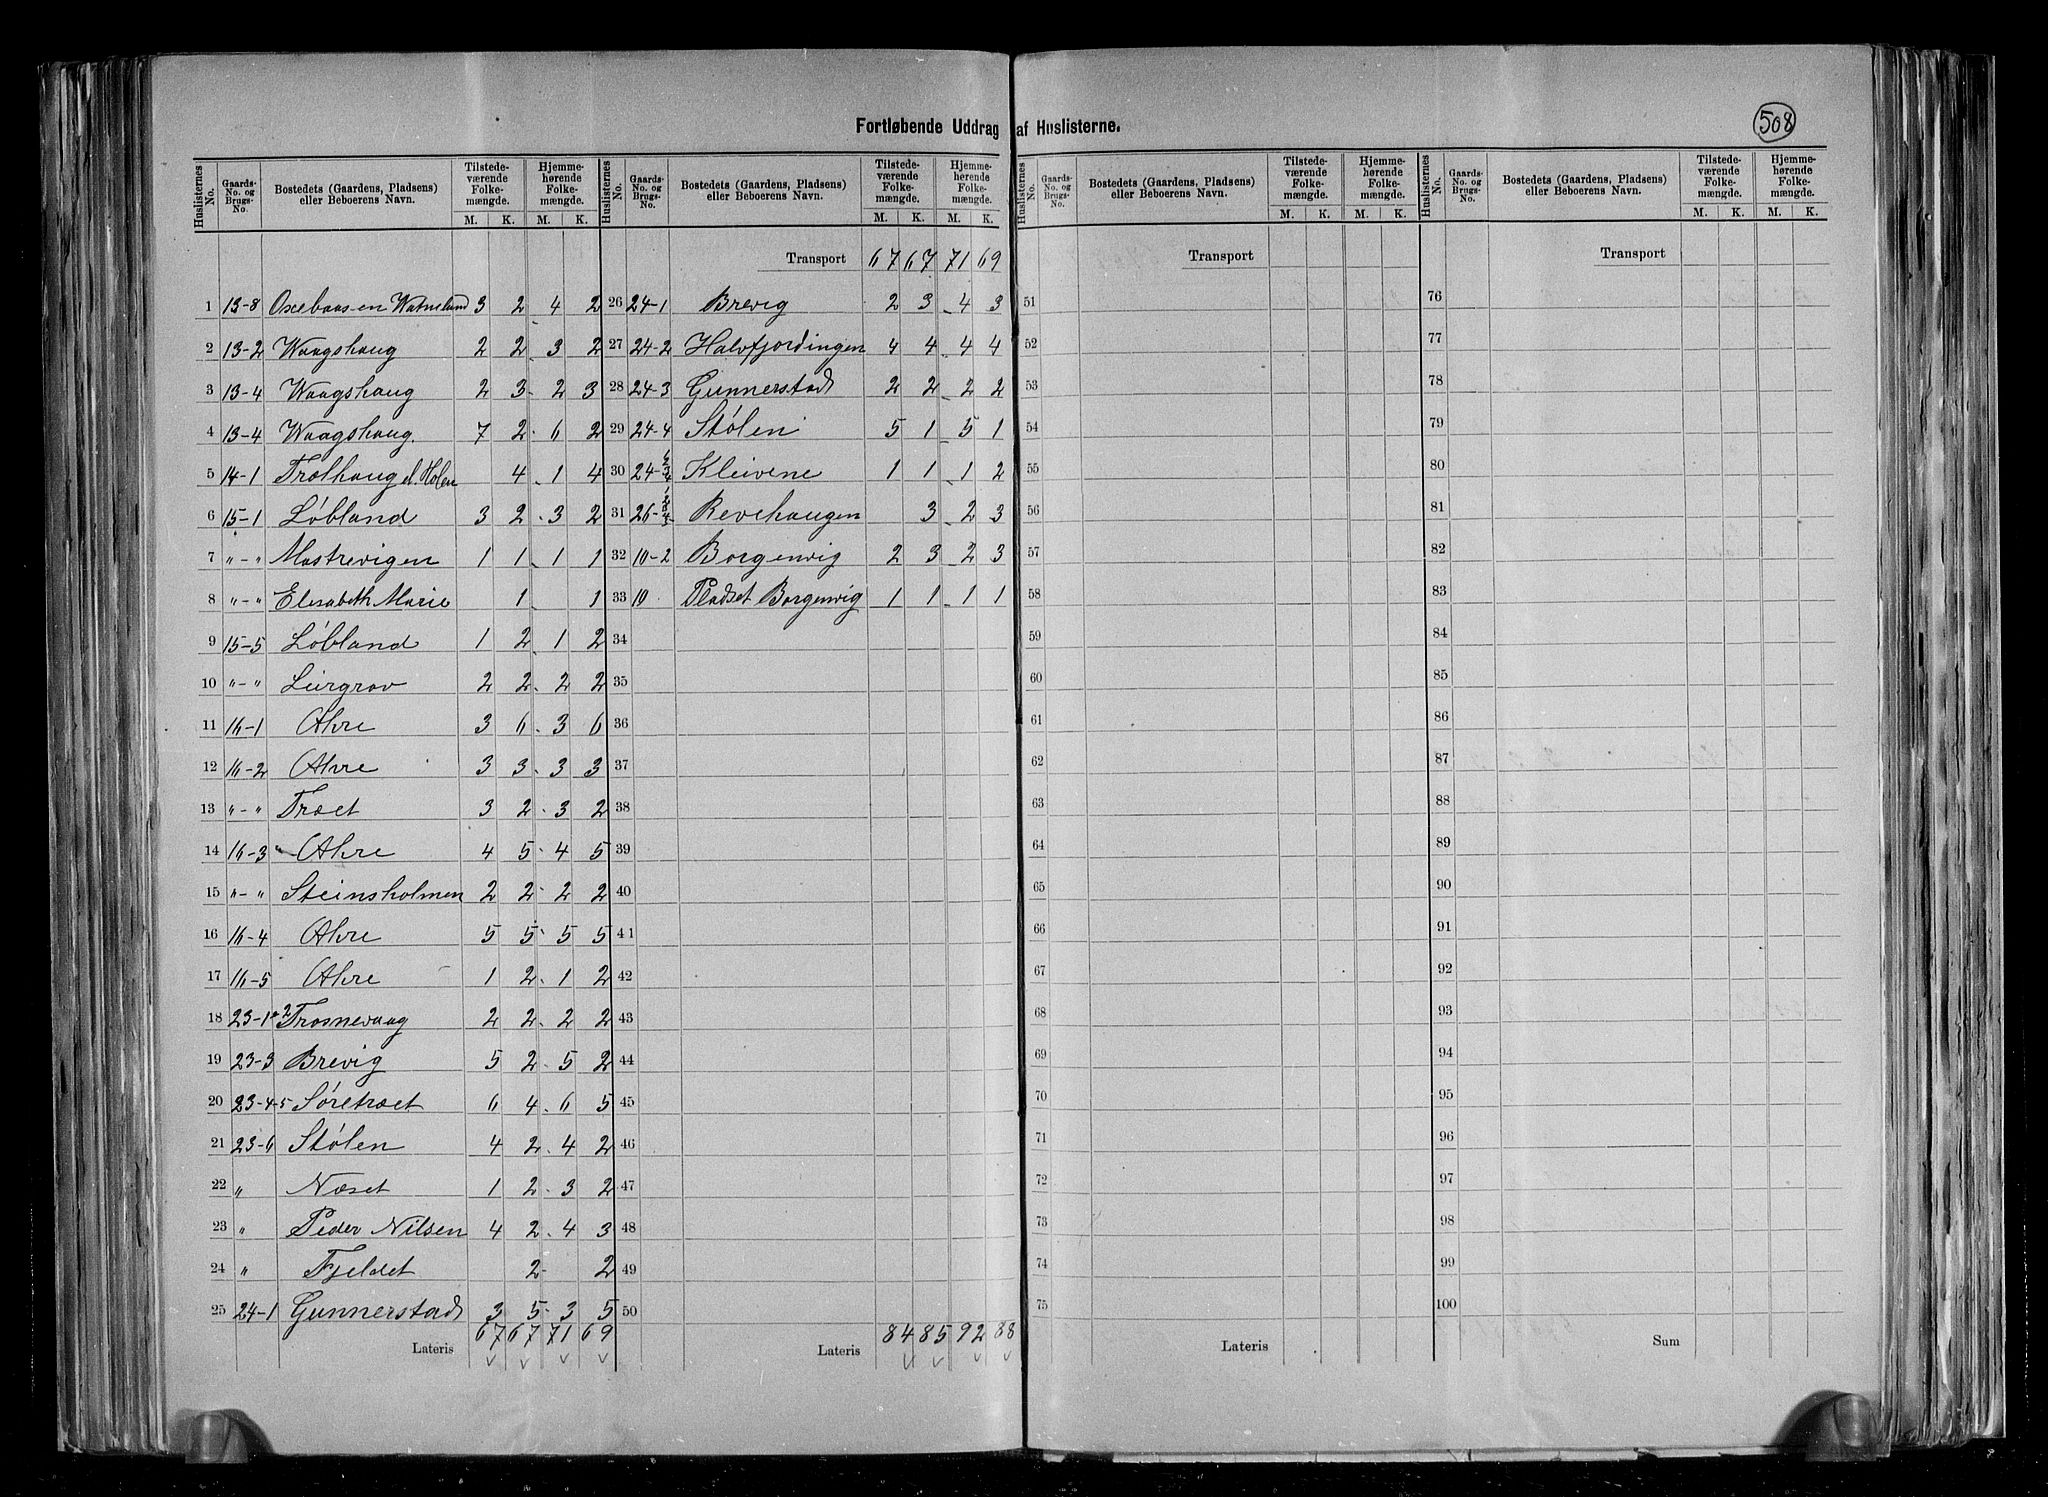 Fortløbende Uddrag af Huslisterne.
508
Huslisternes No. Gaards-No. og Brugs-No. Bostedets (Gaardens, Pladsens) eller Beboerens Navn. Tilstedeværende Folkemængde. M. K. Hjemmehørende Folkemængde. M. K.
Huslisternes No. Gaards-No. og Brugs-No. Bostedets (Gaardens, Pladsens) eller Beboerens Navn. Tilstedeværende Folkemængde. M. K. Hjemmehørende Folkemængde. M. K.
Huslisternes No. Gaards-No. og Brugs-No. Bostedets (Gaardens, Pladsens) eller Beboerens Navn. Tilstedeværende Folkemængde. M. K. Hjemmehørende Folkemængde. M. K.
Huslisternes No. Gaards-No. og Brugs-No. Bostedets (Gaardens, Pladsens) eller Beboerens Navn. Tilstedeværende Folkemængde. M. K. Hjemmehørende Folkemængde. M. K.
1 13-8 3 2 4 2
2 13-2 Waagshaug 2 2 3 2
3 13-4 Waagshaug 2 3 2 3
4 13-4 Waagshaug. 7 2 6 2
5 14-1 Trolhaug el. Holen 4 1 4
6 15-1 Løbland 3 2 3 2
7 "-" Mostrevigen 1 1 1 1
8 "-" Elisabeth Marie 1 1
9 15-5 Løbland 1 2 1 2
10 "-" Leirgrov 2 2 2 2
11 16-1 Ahre 3 6 3 6
12 16-2 Ahre 3 3 3 3
13 "-" Træet 3 2 3 2
14 16-3 Ahre 4 5 4 5
15 "-" Steinsholmen 2 2 2 2
16 16-4 Ahre 5 5 5 5
17 16-5 Ahre 1 2 1 2
18 23-1-2 Trosnevaag 2 2 2 2
19 23-3 Brevig 5 2 5 2
20 23-4-5 Søretræet 6 4 6 5
21 23-6 Stølen 4 2 4 2
22 " Næset 1 2 3 2
23 " Peder Nilsen 4 2 4 3
24 " Fjeldet 2 2
25 24-1 Gunnerstad 3 5 3 5
Lateris 67 67 71 69
Transport 67 67 71 69
26 24-1 Brevig 2 3 4 3
27 24-2 Halvfjordingen 4 4 4 4
28 24-3 Gunnerstad 2 2 2 2
29 24-4 Stølen 5 1 5 1
30 24- Kleivene 1 1 1 2
31 26- Revehaugen 3 2 3
32 10-2 Borgenvig 2 3 2 3
33 10 Pladset Borgenvig 1 1 1 1
34
35
36
37
38
39
40
41
42
43
44
45
46
47
48
49
50
Lateris 84 85 92 88
Transport
51
52
53
54
55
56
57
58
59
60
61
62
63
64
65
66
67
68
69
70
71
72
73
74
75
Lateris
Transport
76
77
78
79
80
81
82
83
84
85
86
87
88
89
90
91
92
93
94
95
96
97
98
99
100
Sum